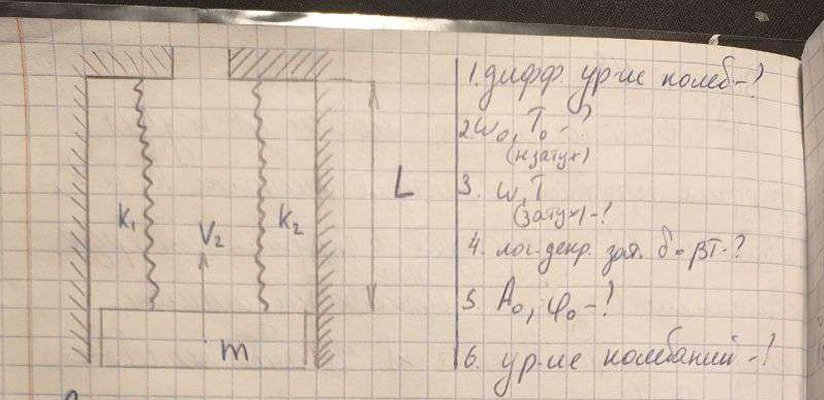 k₁
V₂
k₂
L
m
1. дифф. ур-ие колеб-?
2 ω₀, T₀ - ?
(нзатух)
3. ω, T
(затух)-?
4. лог. декр. зат. δ=βT-?
5. A₀, φ₀-?
6. ур-ие колебаний -?